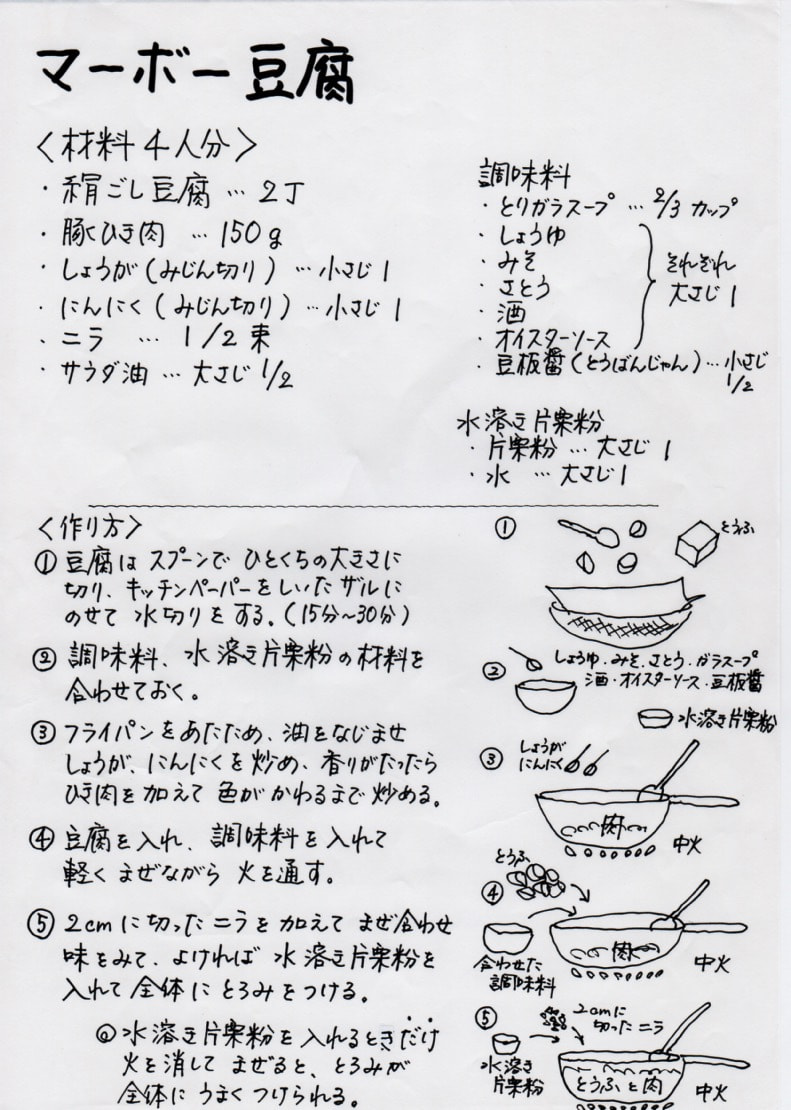 マーボー豆腐
〈材料4人分〉
・絹ごし豆腐…2丁
・豚ひき肉…150g
・しょうが(みじん切り)…小さじ1
・にんにく(みじん切り)…小さじ1
・ニラ…1/2束
・サラダ油…大さじ1/2
調味料
・とりガラスープ…2/3カップ
・しょうゆ
・みそ
・さとう
・酒
・オイスターソース
それぞれ
大さじ1
・豆板醤(とうばんじゃん)…小さじ
1/2
水溶き片栗粉
・片栗粉…大さじ1
・水…大さじ1
〈作り方〉
①豆腐はスプーンでひとくちの大きさに
切り、キッチンペーパーをしいたザルに
のせて水切りをする。(15分~30分)
②調味料、水溶き片栗粉の材料を
合わせておく。
③フライパンをあたため、油をなじませ
しょうが、にんにくを炒め、香りがたったら
ひき肉を加えて色がかわるまで炒める。
④豆腐を入れ、調味料を入れて
軽くまぜながら火を通す。
⑤2cmに切ったニラを加えてまぜ合わせ
味をみて、よければ水溶き片栗粉を
入れて全体にとろみをつける。
◎水溶き片栗粉を入れるときだけ
火を消してまぜると、とろみが
全体にうまくつけられる。
①
とうふ
②
しょうゆ・みそ・さとう・ガラスープ
酒・オイスターソース・豆板醤
水溶き片栗粉
③
しょうが
にんにく
肉
中火
④
とうふ
合わせた
調味料
肉
中火
⑤
2cmに
切ったニラ
水溶き
片栗粉
とうふと肉
中火